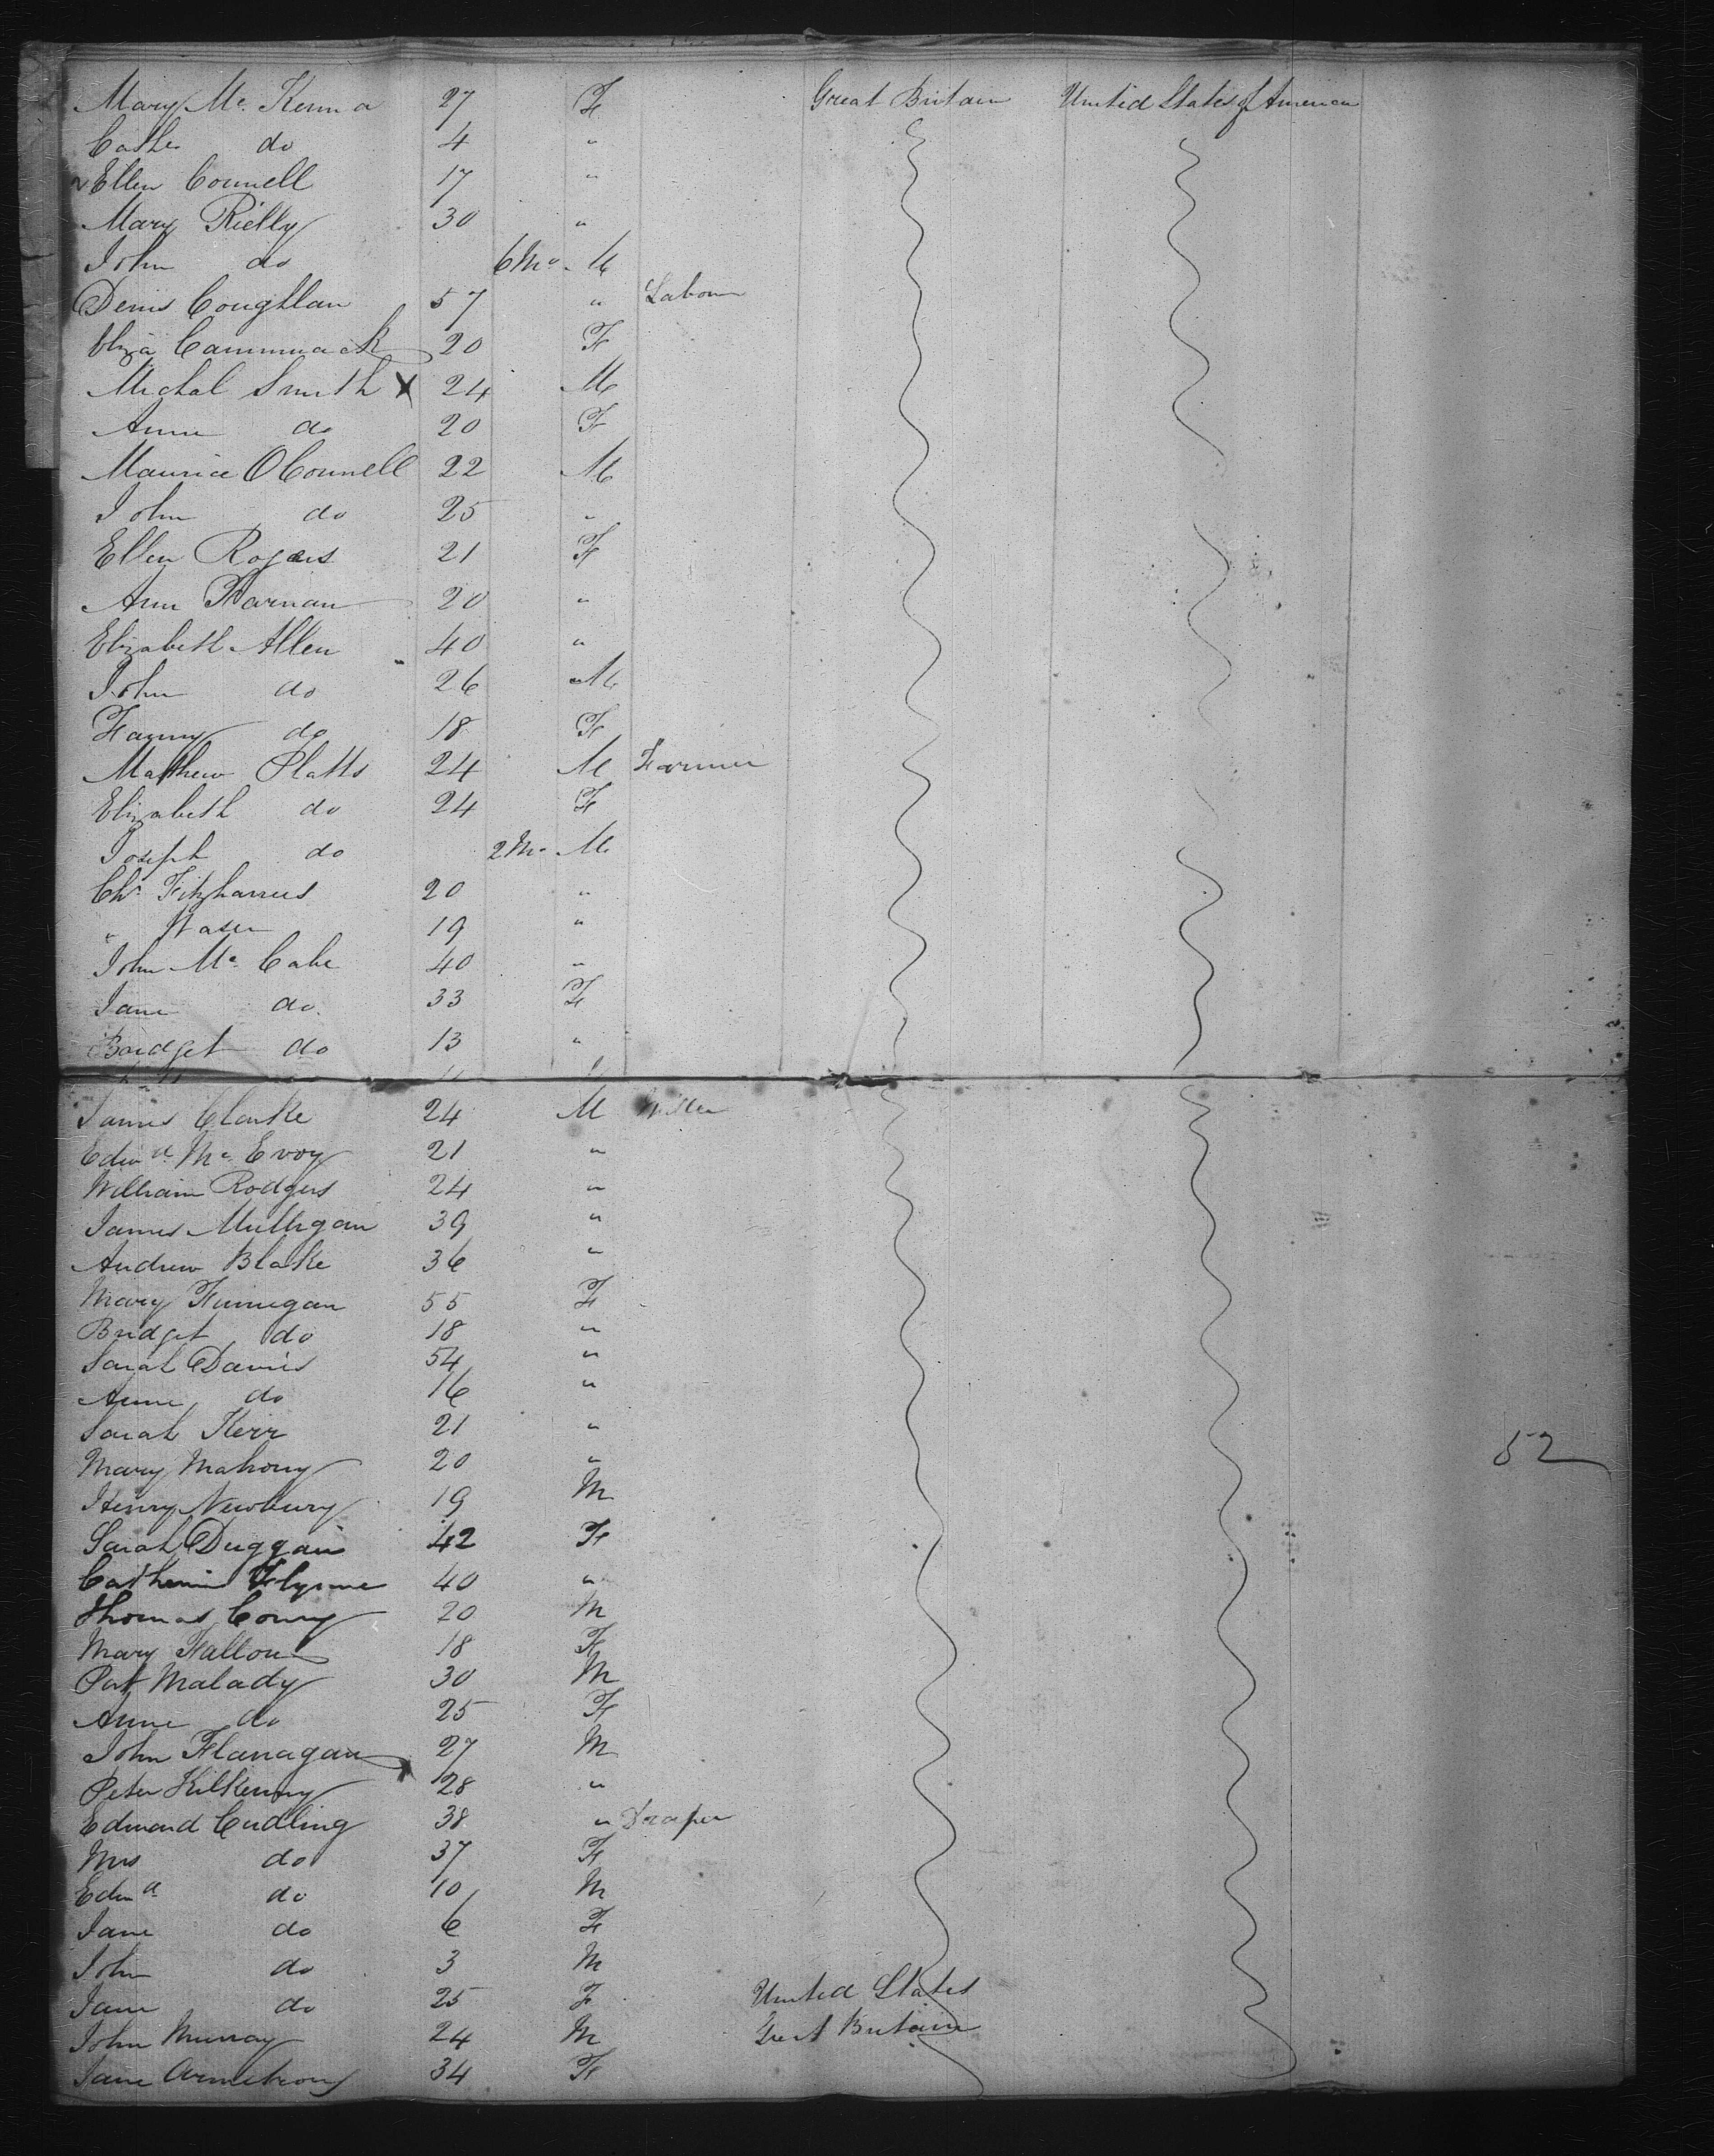 Mary Mc Kenna 27 F Great Britain United States of America
Cathe do 4 "
Ellen Connell 17 "
Mary Rielly 30 "
John do 6 Mo M
Denis Coughlan 57 " Labour
Eliza Cammack 20 F
Michal Smith X 24 M
Anne do 20 F
Maurice OConnell 22 M
John do 25 "
Ellen Rogers 21 F
Ann Harnan 20 "
Elizabeth Allen 40 "
John do 26 M
Fanny do 18 F
Mathew Platts 24 M Farmer
Elizabeth do 24 F
Joseph do 2 Mo M
Chs Fitzharris 20 "
" 19 "
John Mc Cabe 40 "
Jane do 33 F
Bridget do 13 "
James Clarke 24 M Miller
Edwd Mc Evoy 21 "
William Rodgers 24 "
James Mulligan 39 "
Andrew Blake 36 "
Mary Finnegan 55 F
Bridget do 18 "
Sarah Davis 54 "
Anne do 16 "
Sarah Kerr 21 "
Mary Mahony 20 "
52
Henry Newbury 19 M
Sarah Duggan 42 F
Catherine Flynne 40 "
Thomas Conry 20 M
Mary Fallon 18 F
Pat Malady 30 M
Anne do 25 F
John Flanagan 27 M
Peter Kilkenny 28 "
Edmond Cudling 38 " Draper
Mrs do 37 F
Edmd do 10 M
Jane do 6 F
John do 3 M
Jane do 25 F United States
John Murray 24 M Great Britain
Jane Armstrong 34 F